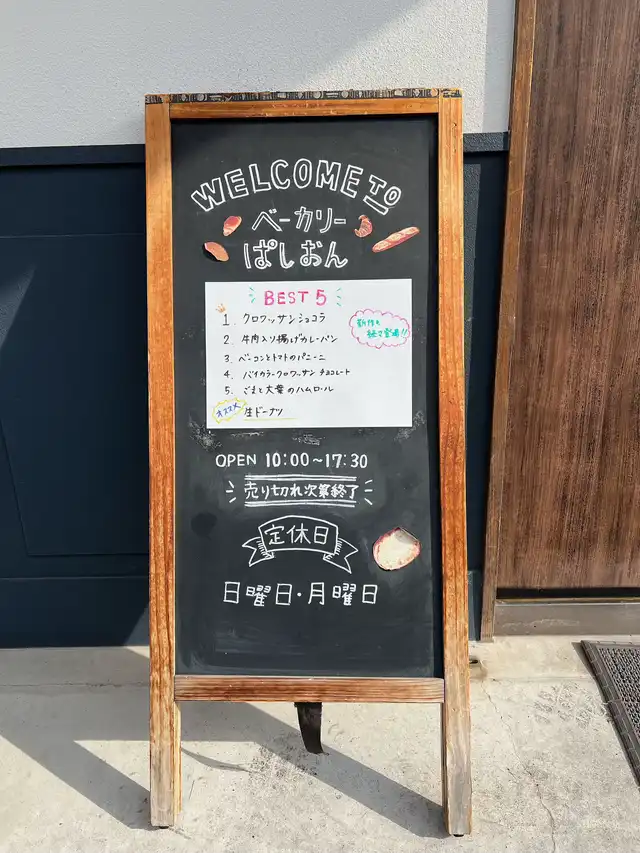 WELCOME TO
ベーカリー
ぱしおん
BEST 5
1. クロワッサンショコラ
新作も
続々登場!!
2. 牛肉入り揚げカレーパン
3. ベーコンとトマトのパニーニ
4. バイカラークロワッサン チョコレート
5. ごまと大葉のハムロール
オススメ 生ドーナツ
OPEN 10:00～17:30
売り切れ次第終了
定休日
日曜日・月曜日